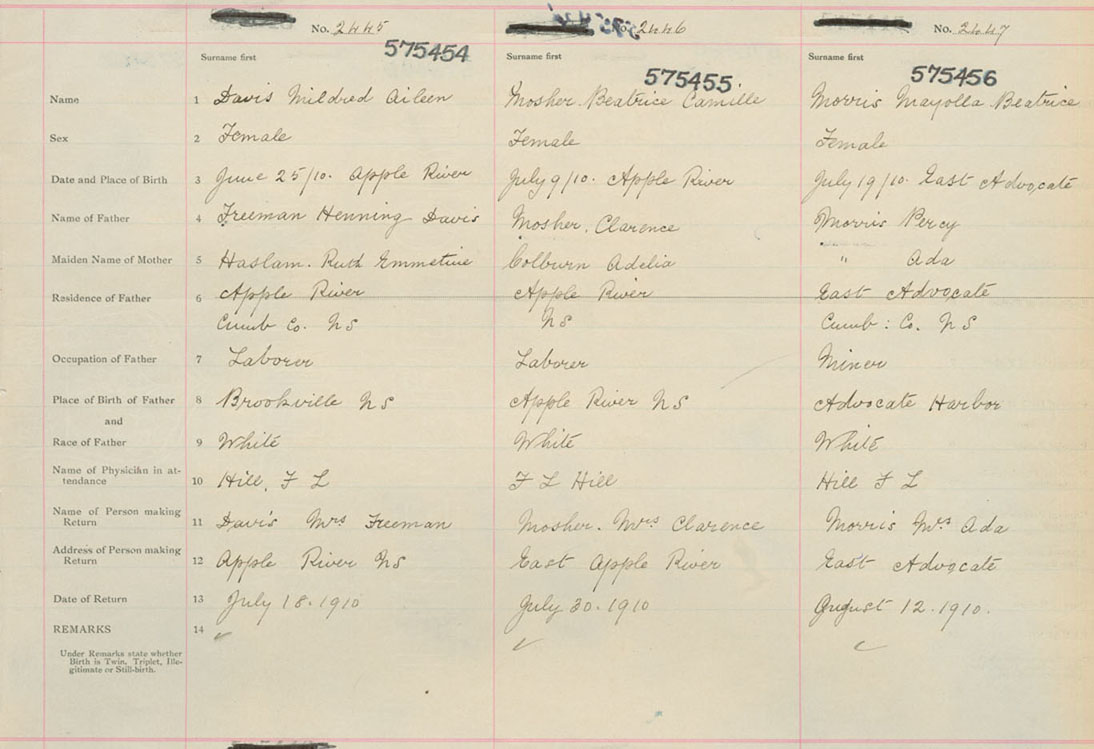 No. 2445 No. 2446 No. 2447
Surname first Surname first Surname first
575454 575455 575456
Name 1 Davis Mildred Aileen Mosher Beatrice Camille Morris Mayolla Beatrice
Sex 2 Female Female Female
Date and Place of Birth 3 June 25/10. Apple River July 9/10. Apple River July 19/10. East Advocate
Name of Father 4 Freeman Henning Davis Mosher. Clarence Morris Percy
Maiden Name of Mother 5 Haslam. Ruth Emmetine Colburn Adelia " Ada
Residence of Father 6 Apple River Apple River East Advocate
Cumb Co. NS NS Cumb: Co. NS
Occupation of Father 7 Laborer Laborer Miner
Place of Birth of Father 8 Brookville NS Apple River NS Advocate Harbor
and
Race of Father 9 White White White
Name of Physician in at-
tendance 10 Hill, F L F L Hill Hill F L
Name of Person making
Return 11 Davis Mrs Freeman Mosher. Mrs Clarence Morris Mrs Ada
Address of Person making
Return 12 Apple River NS East Apple River East Advocate
Date of Return 13 July 18. 1910 July 30. 1910 August 12. 1910.
REMARKS 14
Under Remarks state whether
Birth is Twin, Triplet, Ille-
gitimate or Still-birth.